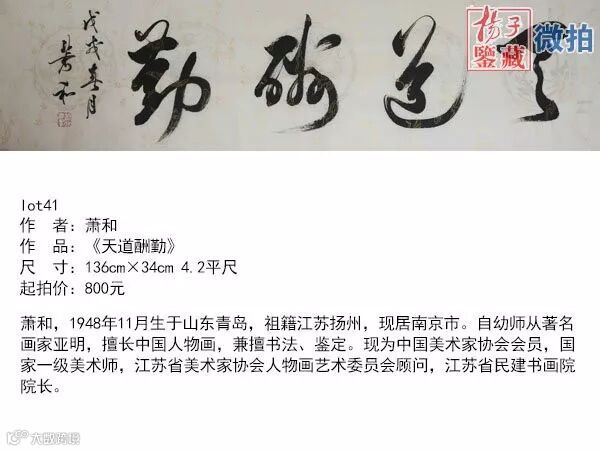 天道酬勤
戊戌春月
萧和
杨子
鑒藏
微拍
lot41
作 者：萧和
作 品：《天道酬勤》
尺 寸：136cm×34cm 4.2平尺
起拍价：800元
萧和，1948年11月生于山东青岛，祖籍江苏扬州，现居南京市。自幼师从著名
画家亚明，擅长中国人物画，兼擅书法、鉴定。现为中国美术家协会会员，国
家一级美术师，江苏省美术家协会人物画艺术委员会顾问，江苏省民建书画院
院长。
大数跨境